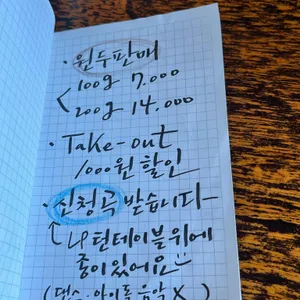 · 원두판매
100g 7.000
< 200g 14.000
· Take-out
1000원 할인
· 신청곡 받습니다
LP 턴테이블 위에
종이 있어요
(댄스·아이돌 음악 X)